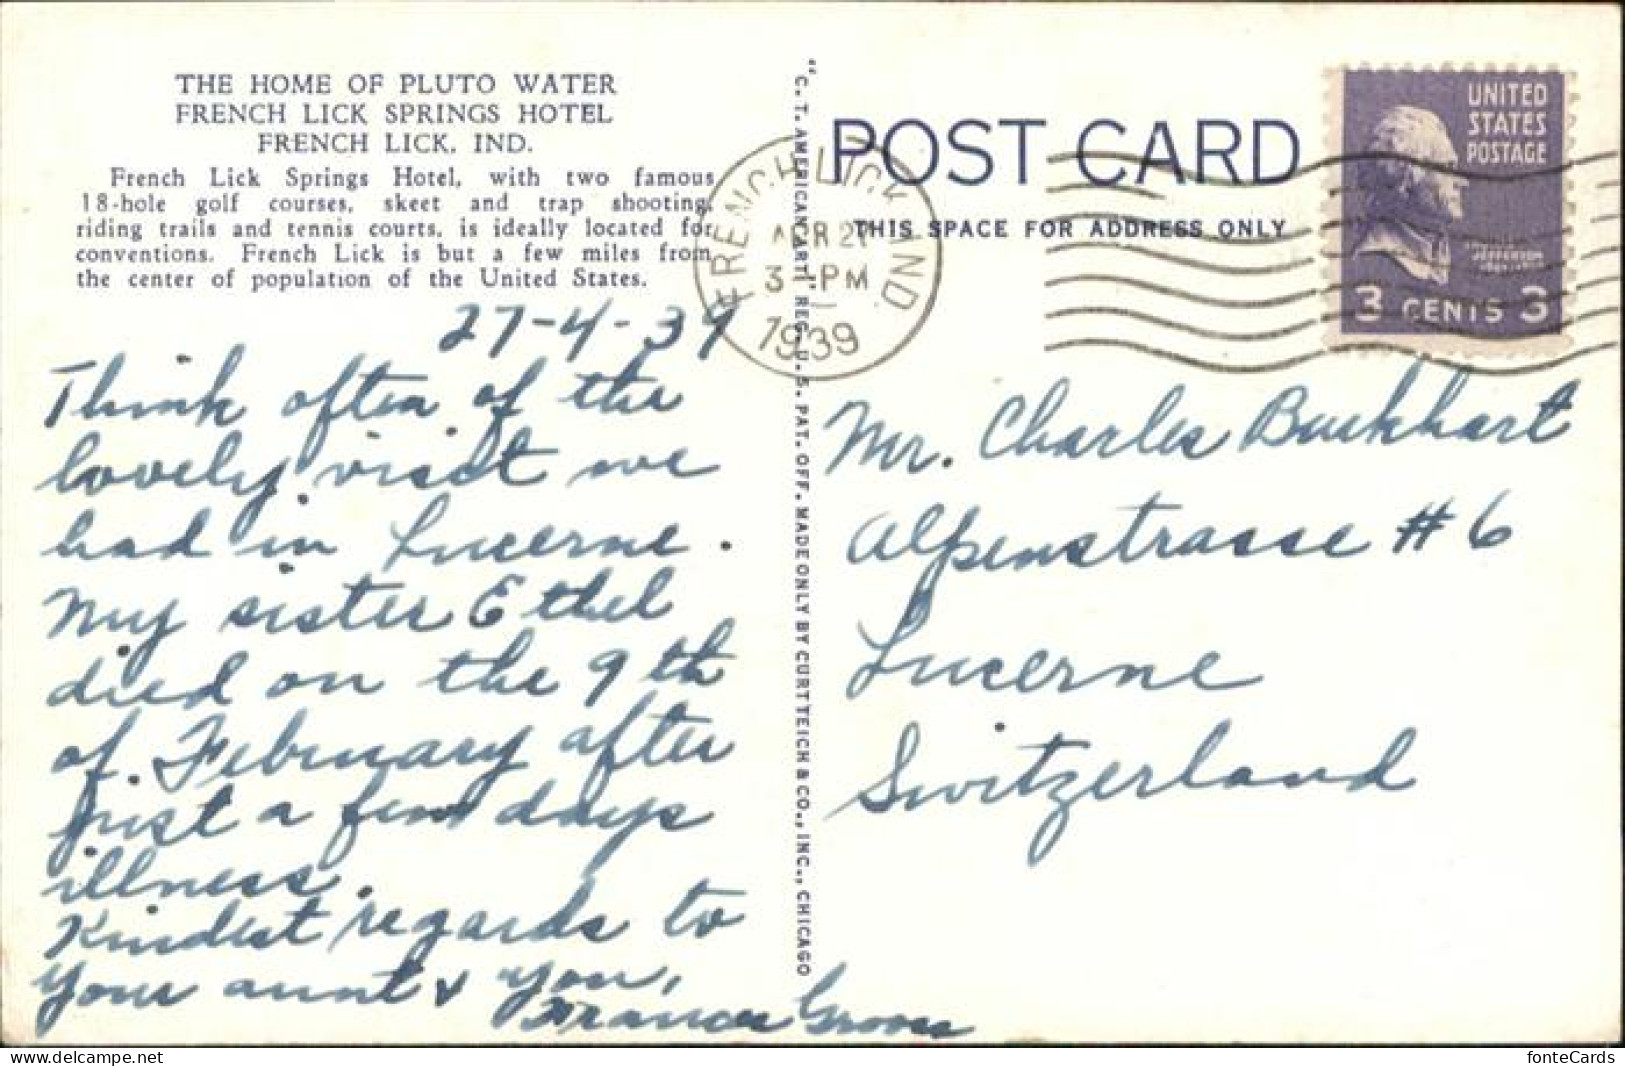 THE HOME OF PLUTO WATER
FRENCH LICK SPRINGS HOTEL
FRENCH LICK, IND.
French Lick Springs Hotel, with two famous
18-hole golf courses, skeet and trap shooting,
riding trails and tennis courts, is ideally located for
conventions. French Lick is but a few miles from
the center of population of the United States.
27-4-39
Think often of the
lovely visit we
had in Lucerne.
My sister Ethel
died on the 9th
of February after
just a few days
illness.
Kindest regards to
your aunt & you,
Frances
"C. T. AMERICAN ART" REG. U. S. PAT. OFF. MADE ONLY BY CURT TEICH & CO., INC., CHICAGO
POST CARD
THIS SPACE FOR ADDRESS ONLY
FRENCH LICK IND.
APR 27
3 - PM
1939
UNITED
STATES
POSTAGE
JEFFERSON
3 CENTS 3
Mr. Charles Burkhart
Alpenstrasse # 6
Lucerne
Switzerland
fonteCards